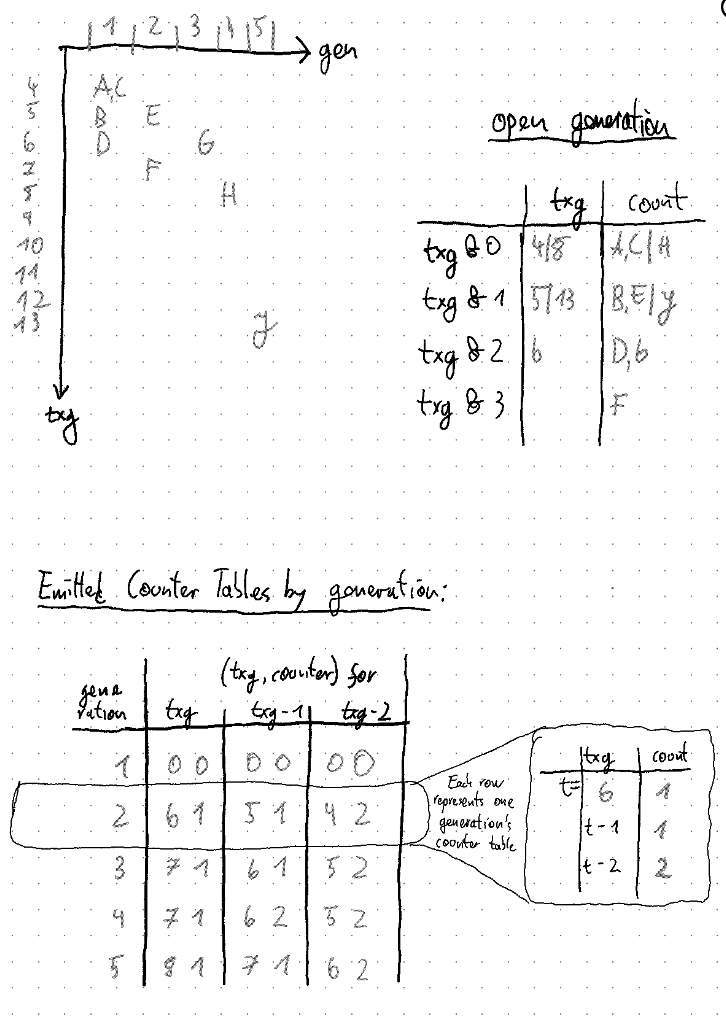 1 2 3 4 5
gen
4 A,C
5 B E
6 D G
7 F
8 H
9
10
11
12
13 y
txg
open generation
txg count
txg & 0 4/8 A,C/H
txg & 1 5/13 B,E/y
txg & 2 6 D,6
txg & 3 F
Emitted Counter Tables by generation:
(txg, counter) for
gene
ration txg txg-1 txg-2
1 0 0 0 0 0 0
2 6 1 5 1 4 2
3 7 1 6 1 5 2
4 7 1 6 2 5 2
5 8 1 7 1 6 2
Each row
represents one
generation's
counter table
txg count
t= 6 1
t-1 1
t-2 2